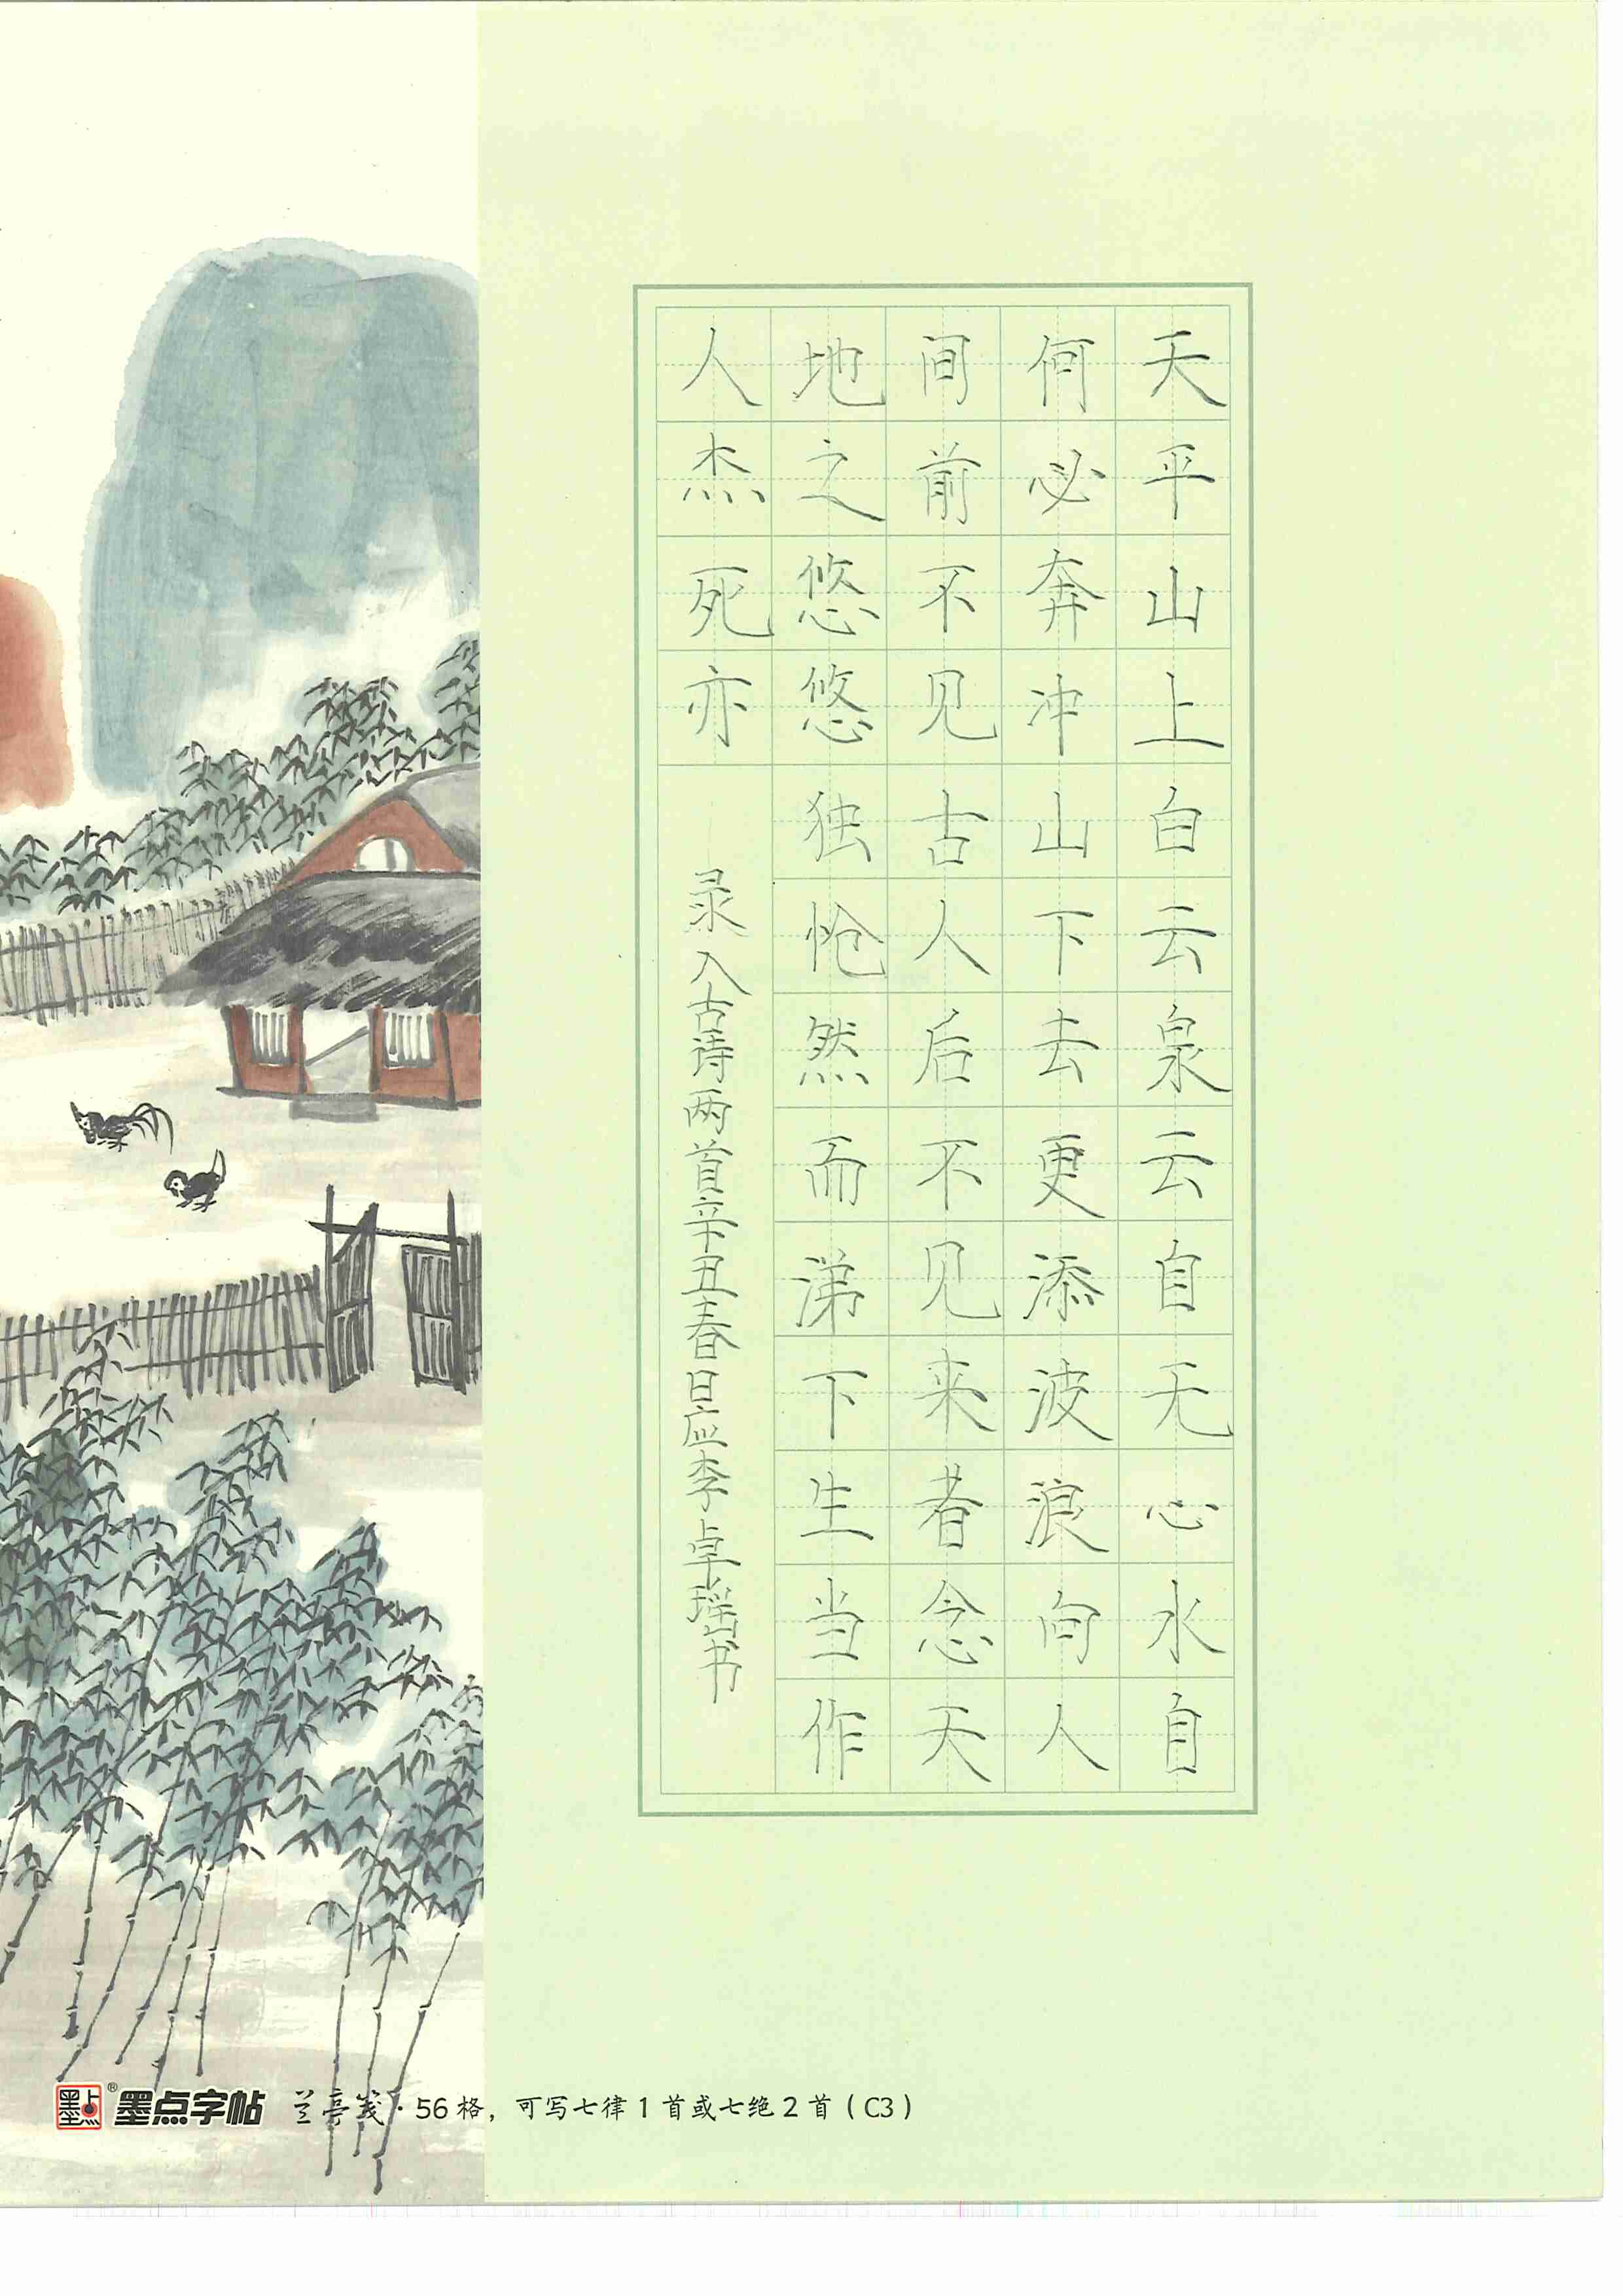 天平山上白云泉云自无心水自
何必奔冲山下去更添波浪向人
间前不见古人后不见来者念天
地之悠悠独怆然而涕下生当作
人杰死亦
录入古诗两首辛丑春日应李卓瑶书
墨点
®
墨点字帖 兰亭笺·56格，可写七律1首或七绝2首（C3）